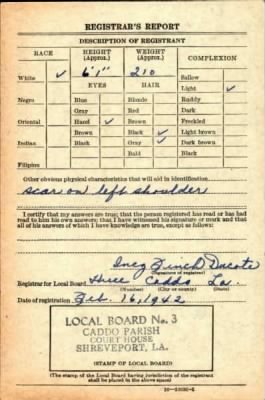 REGISTRAR'S REPORT
DESCRIPTION OF REGISTRANT
RACE HEIGHT (Approx.) WEIGHT (Approx.) COMPLEXION
White ✓ 6'1" 210 Sallow
EYES HAIR Light ✓
Negro Blue Blonde Ruddy
Gray Red Dark
Oriental Hazel ✓ Brown Freckled
Brown Black ✓ Light brown
Indian Black Gray ✓ Dark brown
Bald Black
Filipino
Other obvious physical characteristics that will aid in identification
scar on left shoulder
I certify that my answers are true; that the person registered has read or has had
read to him his own answers; that I have witnessed his signature or mark and that
all of his answers of which I have knowledge are true, except as follows:
Inez
(Signature of registrar)
Registrar for Local Board Three Caddo La.
(Number) (City or county) (State)
Date of registration Feb. 16, 1942
LOCAL BOARD No. 3
CADDO PARISH
COURT HOUSE
SHREVEPORT, LA.
(STAMP OF LOCAL BOARD)
(The stamp of the Local Board having jurisdiction of the registrant
shall be placed in the above space.)